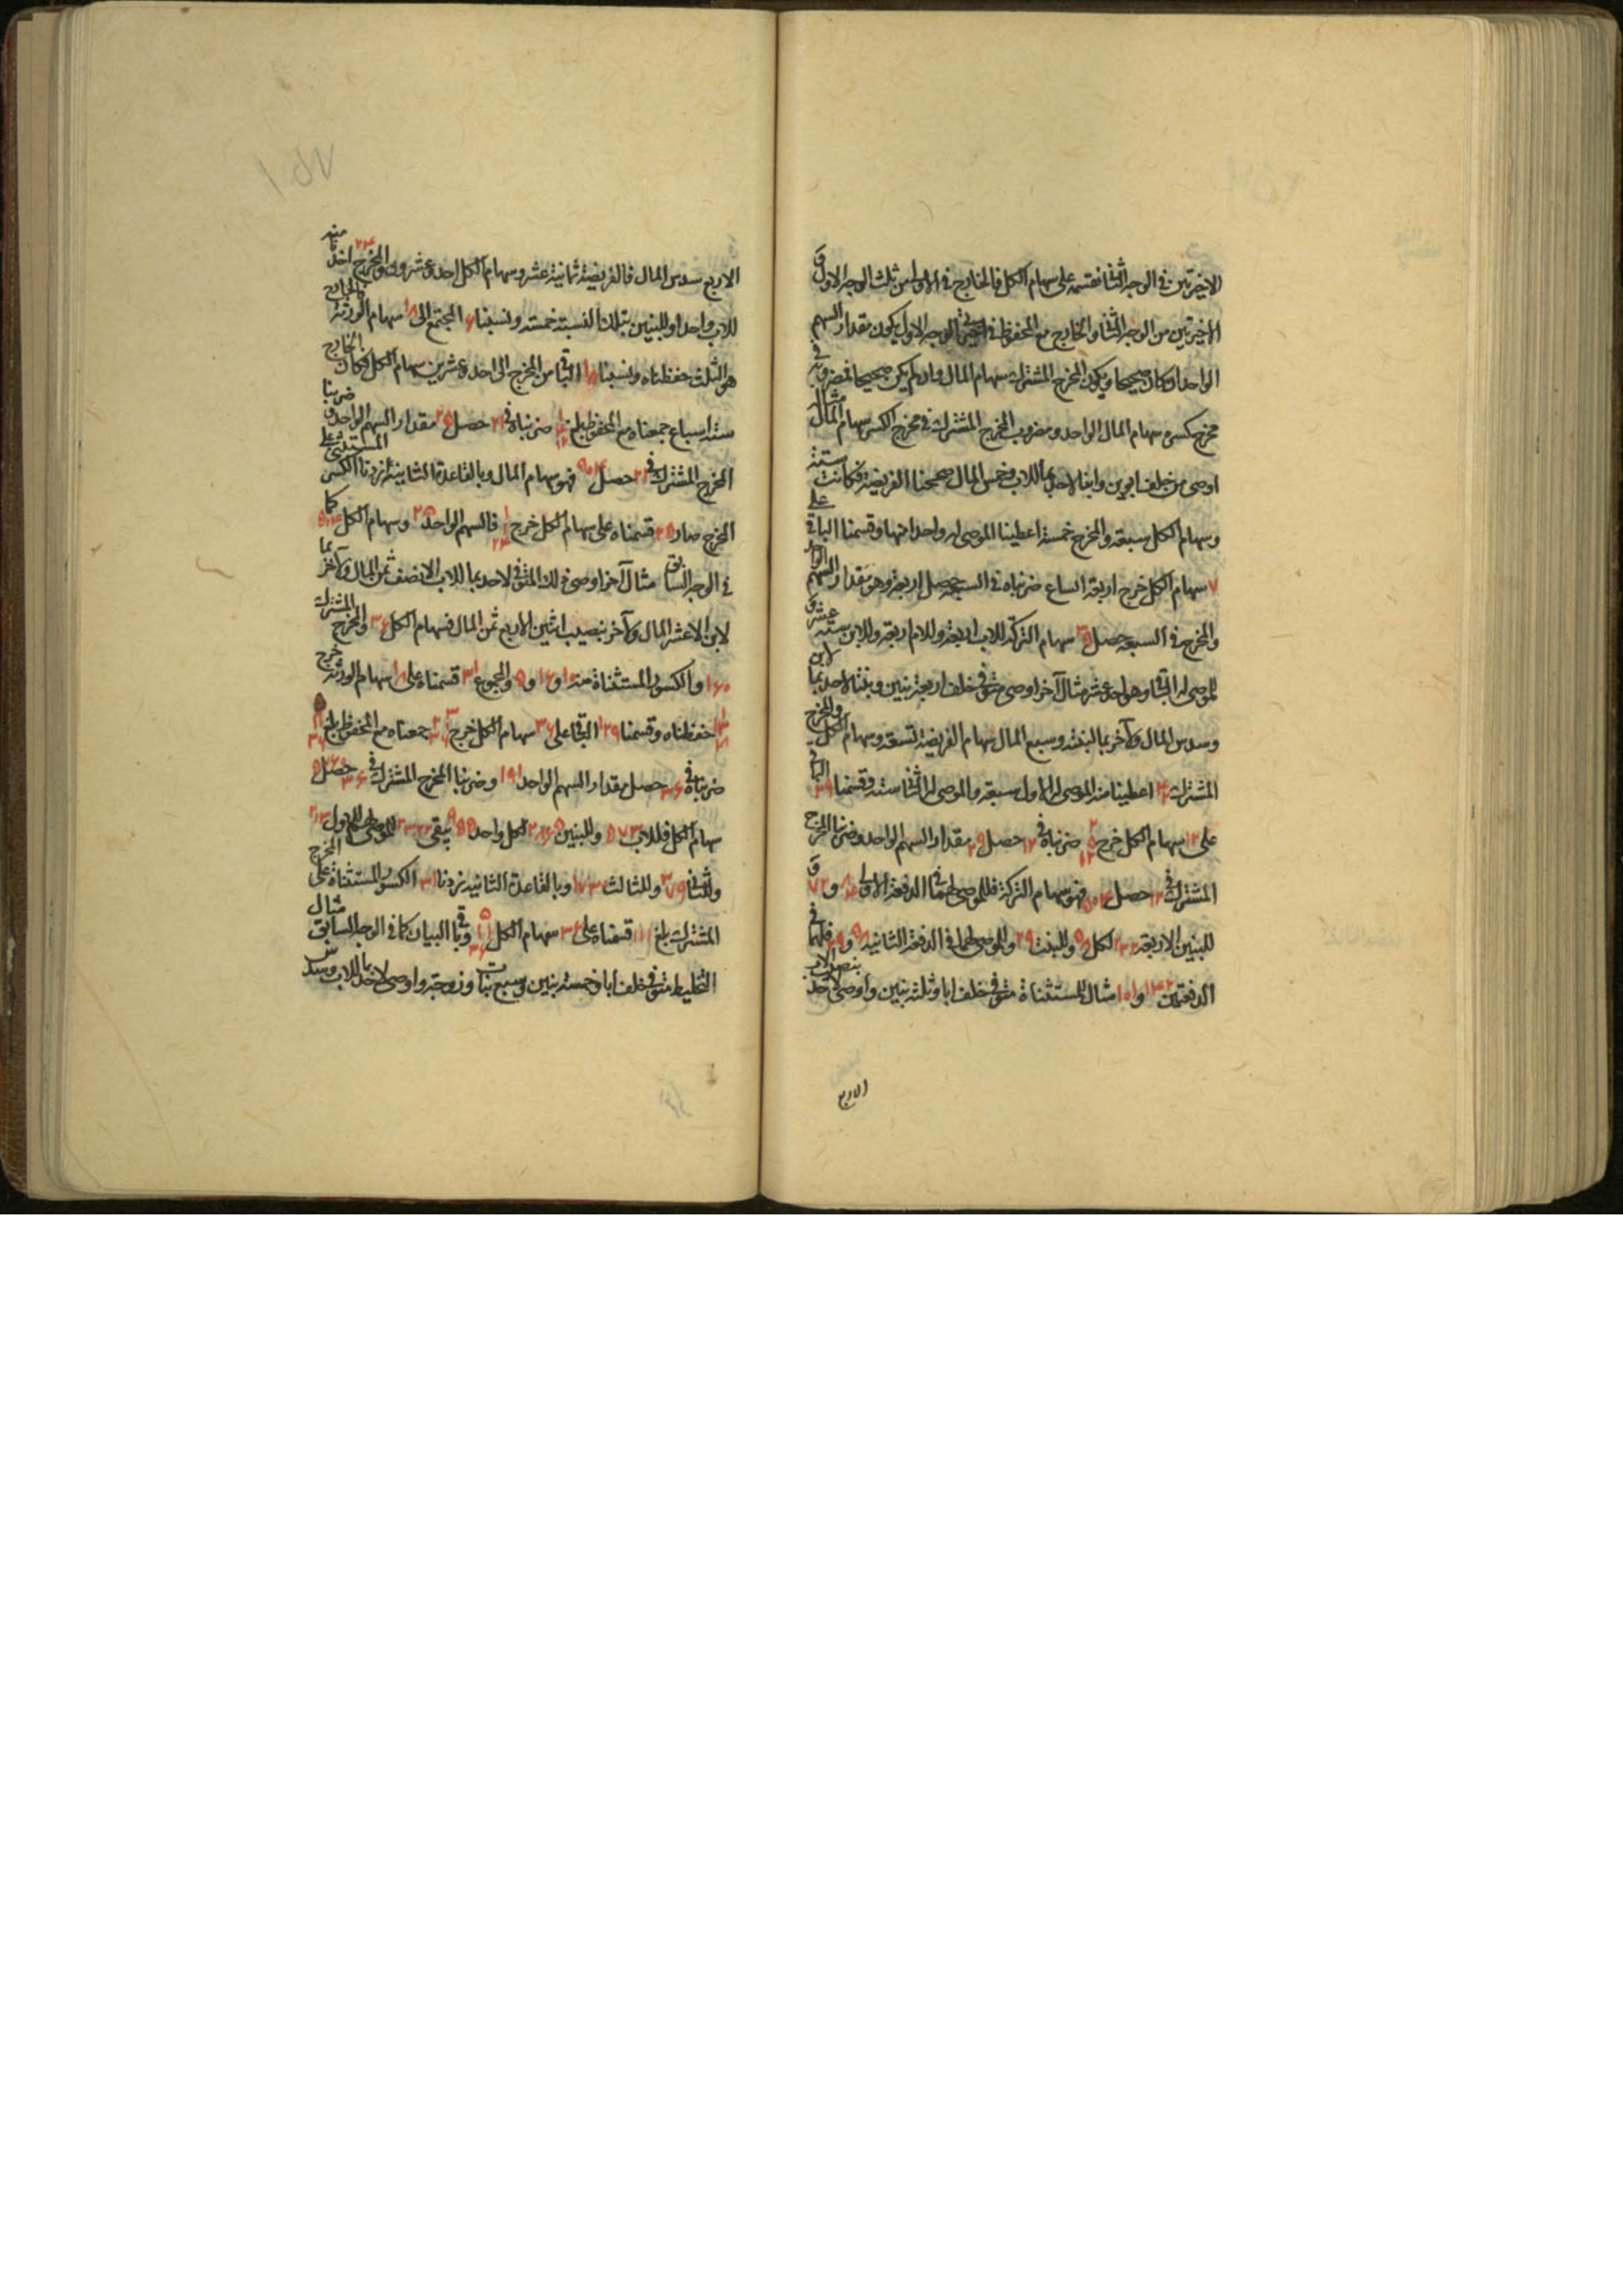 الاخيرتين في الوجه الثاني نقسمه على سهام الكل فالخارج في الاولى من ثلث الوجه الاول و
الاخيرتين من الوجه الثاني والخارج مع المحفوظ في الوجه الاول يكون مقدار السهم
الواحد ان كان صحيحا ويكون المخرج المشترك سهام المال وان لم يكن صحيحا فمضروبه في
مخرج كسره سهام المال الواحد ومضروب المخرج المشترك في مخرج الكسر سهام المال مثاله
اوصى من خلف ابوين وابنا لاحد بما للاب وخمس المال صححنا الفريضة فكانت ستة
وسهام الكل سبعة والمخرج خمسة اعطينا الموصى له واحدا منها وقسمنا الباقي على
٧ سهام الكل خرج اربعة اسباع ضربناه في السبعة حصل اربعة وهو مقدار السهم الواحد
والمخرج في السبعة حصل ٣٥ سهام التركة للاب اربعة وللام اربعة وللابن ستة عشر و
للموصى له الباقي وهو احد عشر مثال آخر اوصى متوفى خلف اربعة بنين وبنتا لاحد بما لابن
وسدس المال ولآخر بما للبنت وسبع المال سهام الفريضة تسعة وسهام الكل ١٢ والمخرج
المشترك ٤٢ اعطينا منه الموصى له الاول سبعة والموصى له الثاني ستة وقسمنا ٢٩ الباقي
على ١٢ سهام الكل خرج ٢ ٥ ١٢ ضربناه في ١٢ حصل ٢٩ مقدار السهم الواحد وضربنا المخرج
المشترك في ١٢ حصل ٥٠٤ فهو سهام التركة فللموصى لهما في الدفعة الاولى ٨٤ و ٧٢ و
للبنين الاربعة ٢٣٢ لكل ٥٨ وللبنت ٢٩ وللموصى لهما في الدفعة الثانية ٥٨ و ٢٩ فلهما في
الدفعتين ١٤٢ و ١٠١ مثال المستثناة متوفى خلف ابا وثلثة بنين واوصى لاحد بنصيب الاب
الاربع
الاربع سدس المال فالفريضة ثمانية عشر وسهام الكل احد وعشرون والمخرج ٢٤ اخذنا منه
للاب واحدا وللبنين بتلك النسبة خمسة ونسبنا ٦ المجتمع الى ١٨ سهام الورثة فالخارج
هو الثلث حفظناه ونسبنا ١٨ الباقي من المخرج الى احد وعشرين سهام الكل فكان الخارج
ستة اسباع جمعناه مع المحفوظ بلغ ضربناه في ٢١ حصل ٢٥ مقدار السهم الواحد و ضربنا
المخرج المشترك في ٢١ حصل ٥٠٤ فهو سهام المال وبالقاعدة الثانية زدنا الكسر المستثنى على
المخرج صار ٢٥ قسمناه على سهام الكل خرج فالسهم الواحد ٢٥ وسهام الكل ٥٠٤ كما
في الوجه السابق مثال آخر اوصى ذلك المتوفى لاحد بما للاب الا نصف ثمن المال ولآخر بما
لابن الا عشر المال ولآخر بنصيب اثنين الا ربع ثمن المال فسهام الكل ٣٦ والمخرج المشترك
١٦٠ والكسور المستثناة منه ١٠ و ١٦ و ٥ والمجموع ٣١ قسمناه على ١٨ سهام الورثة خرج
حفظناه وقسمنا ١٢٩ الباقي على ٣٦ سهام الكل خرج جمعناه مع المحفوظ بلغ
ضربناه في ٣٦ حصل مقدار السهم الواحد ١٩١ وضربنا المخرج المشترك في ٣٦ حصل ٥٧٦٠
سهام الكل فللاب ٥٧٣ وللبنين ٢٨٦٥ لكل واحد ٩٥٥ يبقى ٢٣٢٢ للموصى لهم للاول ٢١٣
وللثاني ٣٧٩ وللثالث ١٧٣٠ وبالقاعدة الثانية زدنا ٣١ الكسور المستثناة على المخرج
المشترك بلغ ١٩١ قسمناه على ٣٦ سهام الكل وباقي البيان كما في الوجه السابق مثال
التخليط متوفى خلف ابا وخمسة بنين وسبع بنات وزوجة واوصى لاحد بما للاب وسدس